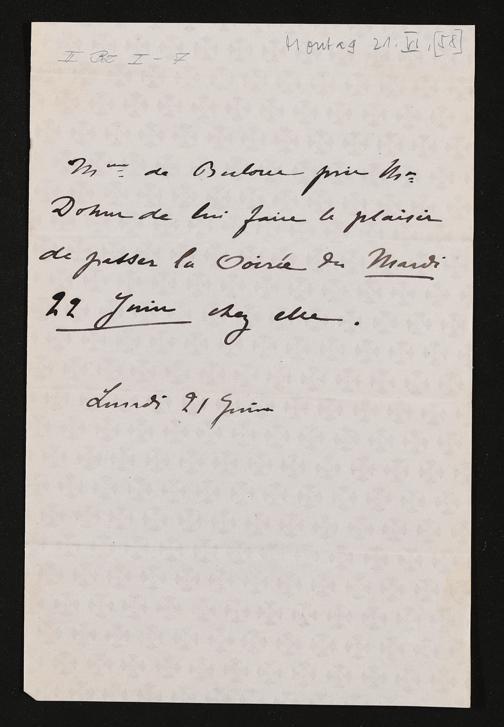 II Be I - 7
Montag 21. VI. [58]
Mme de Bulow prie Mr
Dohm de lui faire le plaisir
de passer la Soirée du Mardi
22 Juin chez elle.
Lundi 21 Juin